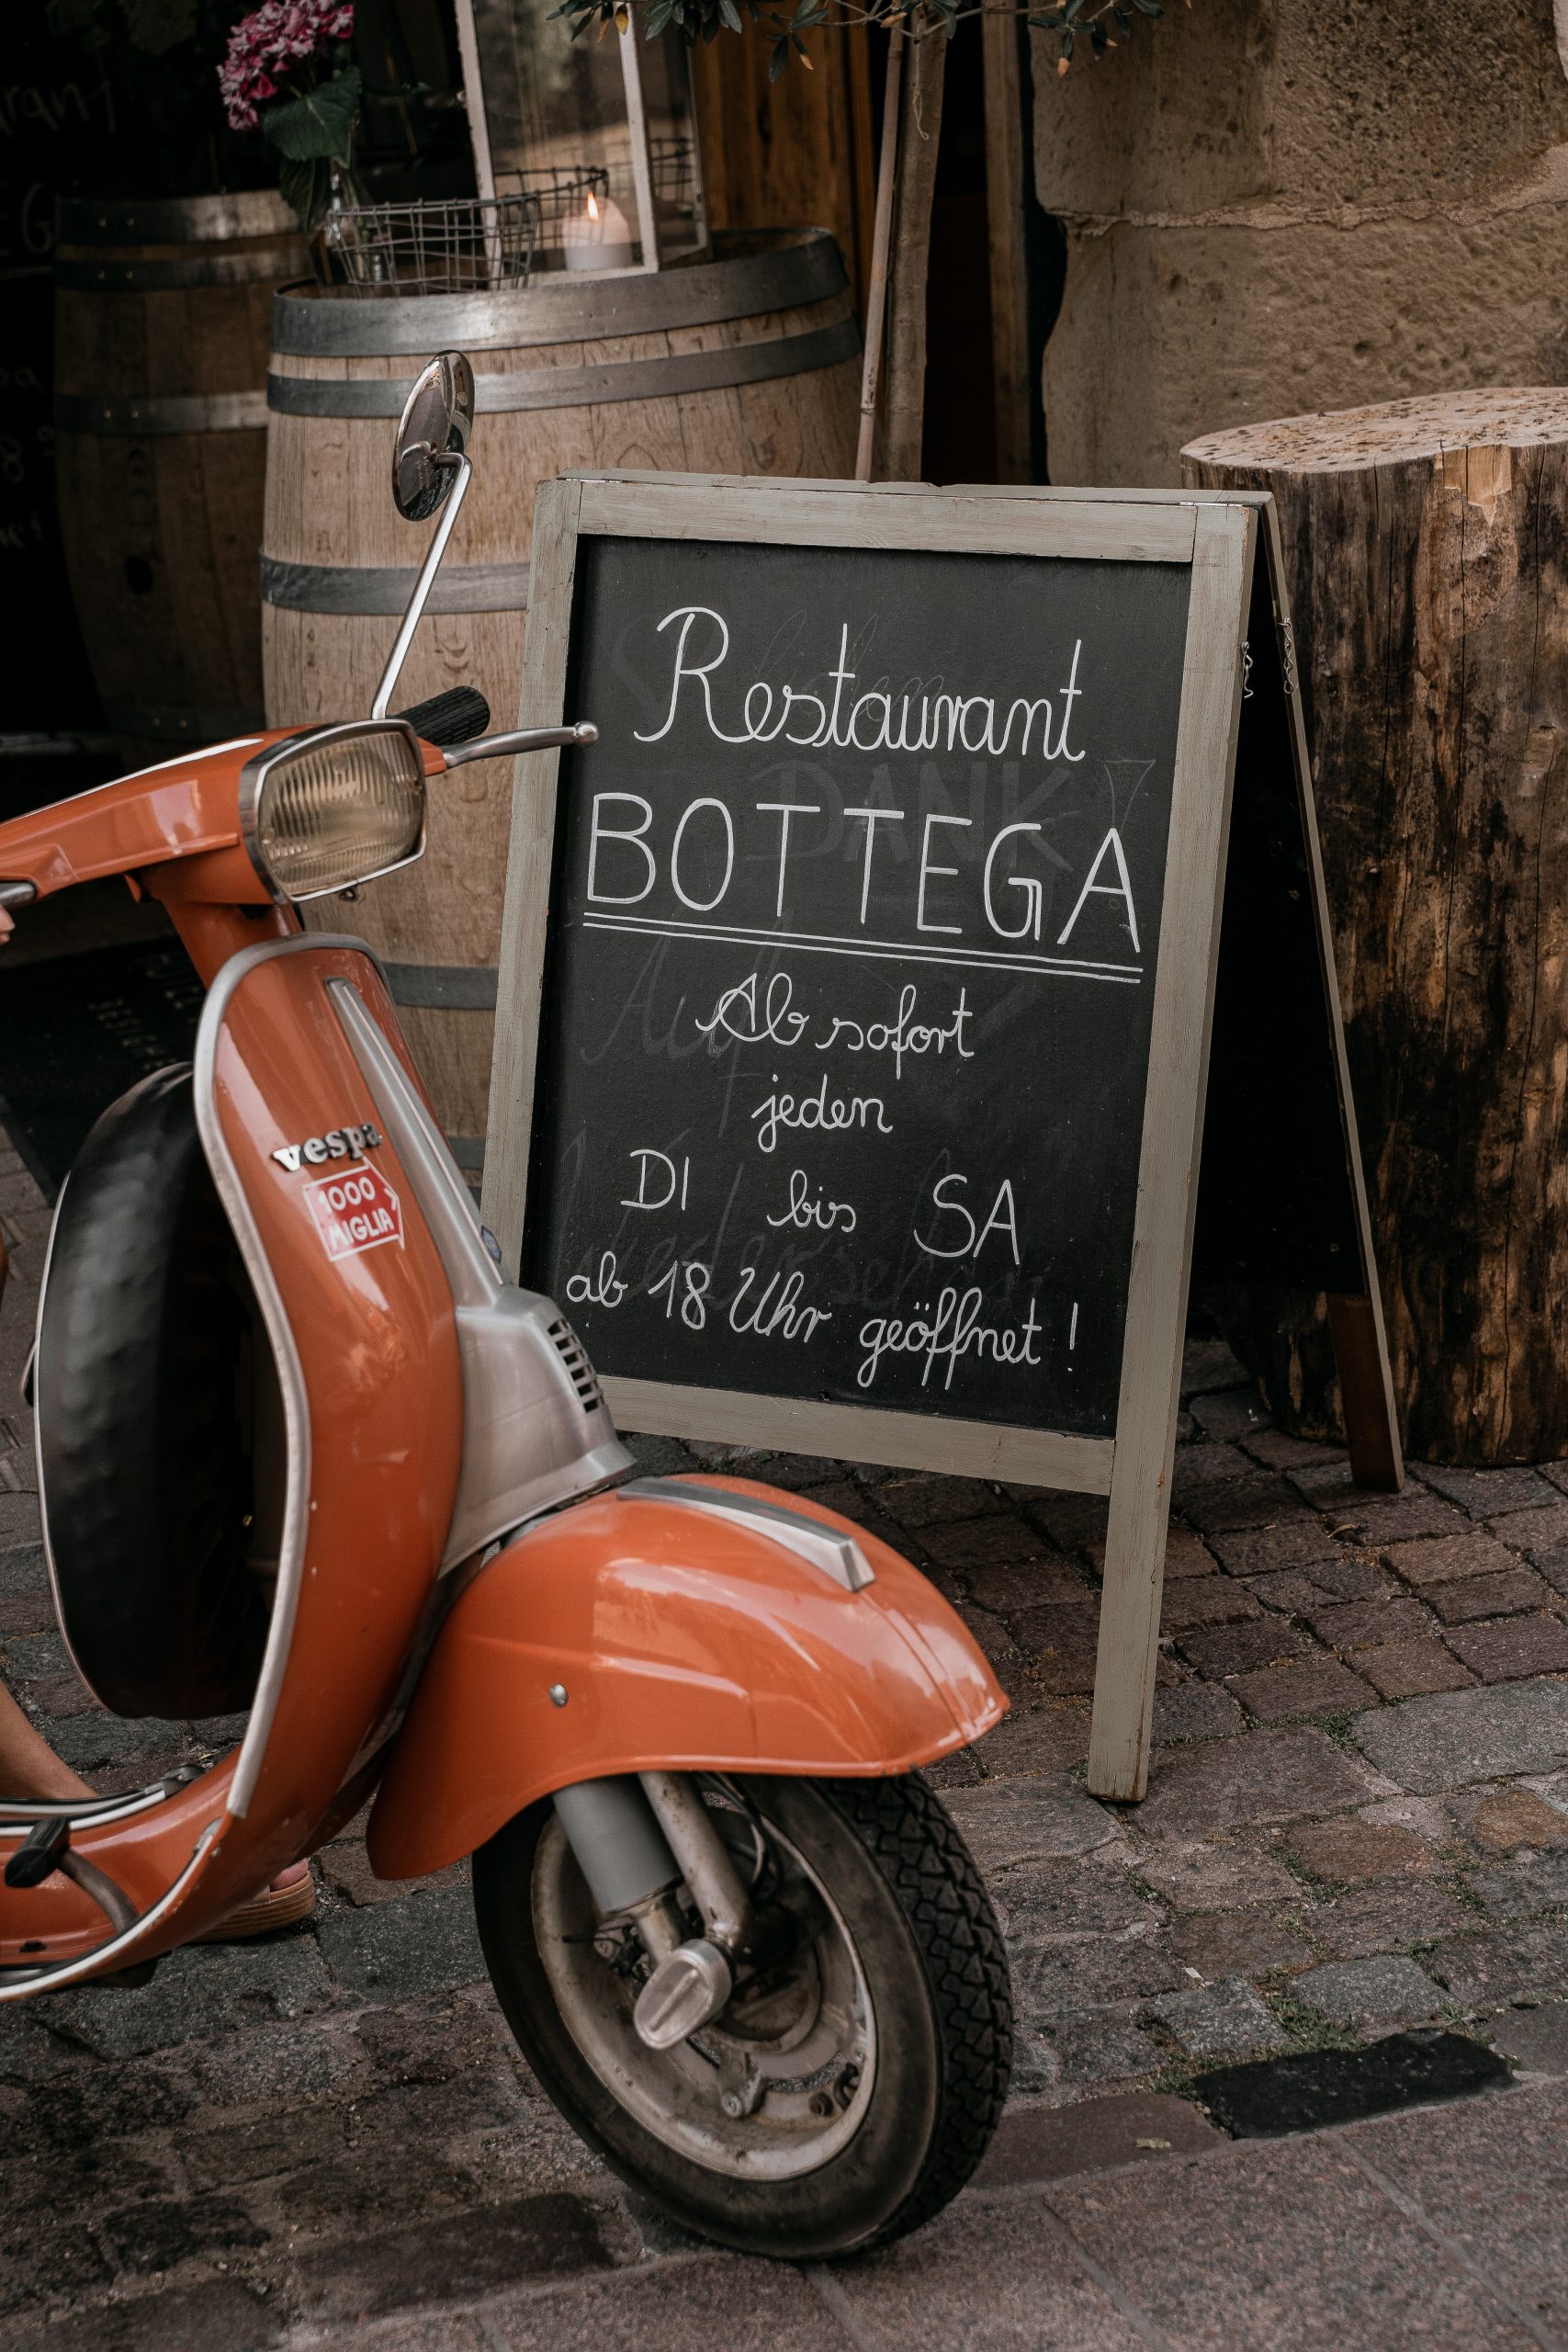 Restaurant
BOTTEGA
Ab sofort
jeden
DI bis SA
ab 18 Uhr geöffnet!
vespa
1000
MIGLIA